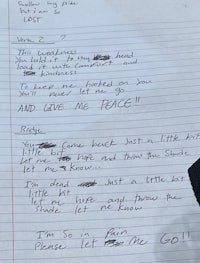 Swallow my pride
but i am so
LOST
Verse 2 ?
This weakness
You hold it to my head
load it with comfort and
kindness
To keep me hooked on you
You'll never let me go
AND GIVE ME PEACE!!
Bridge
You come back Just a little bit
little
let me hope and throw the shade
let me know...
I'm dead Just a little bit
little bit
let me hope and throw the
shade let me know
I'm so in Pain
Please let me GO!!